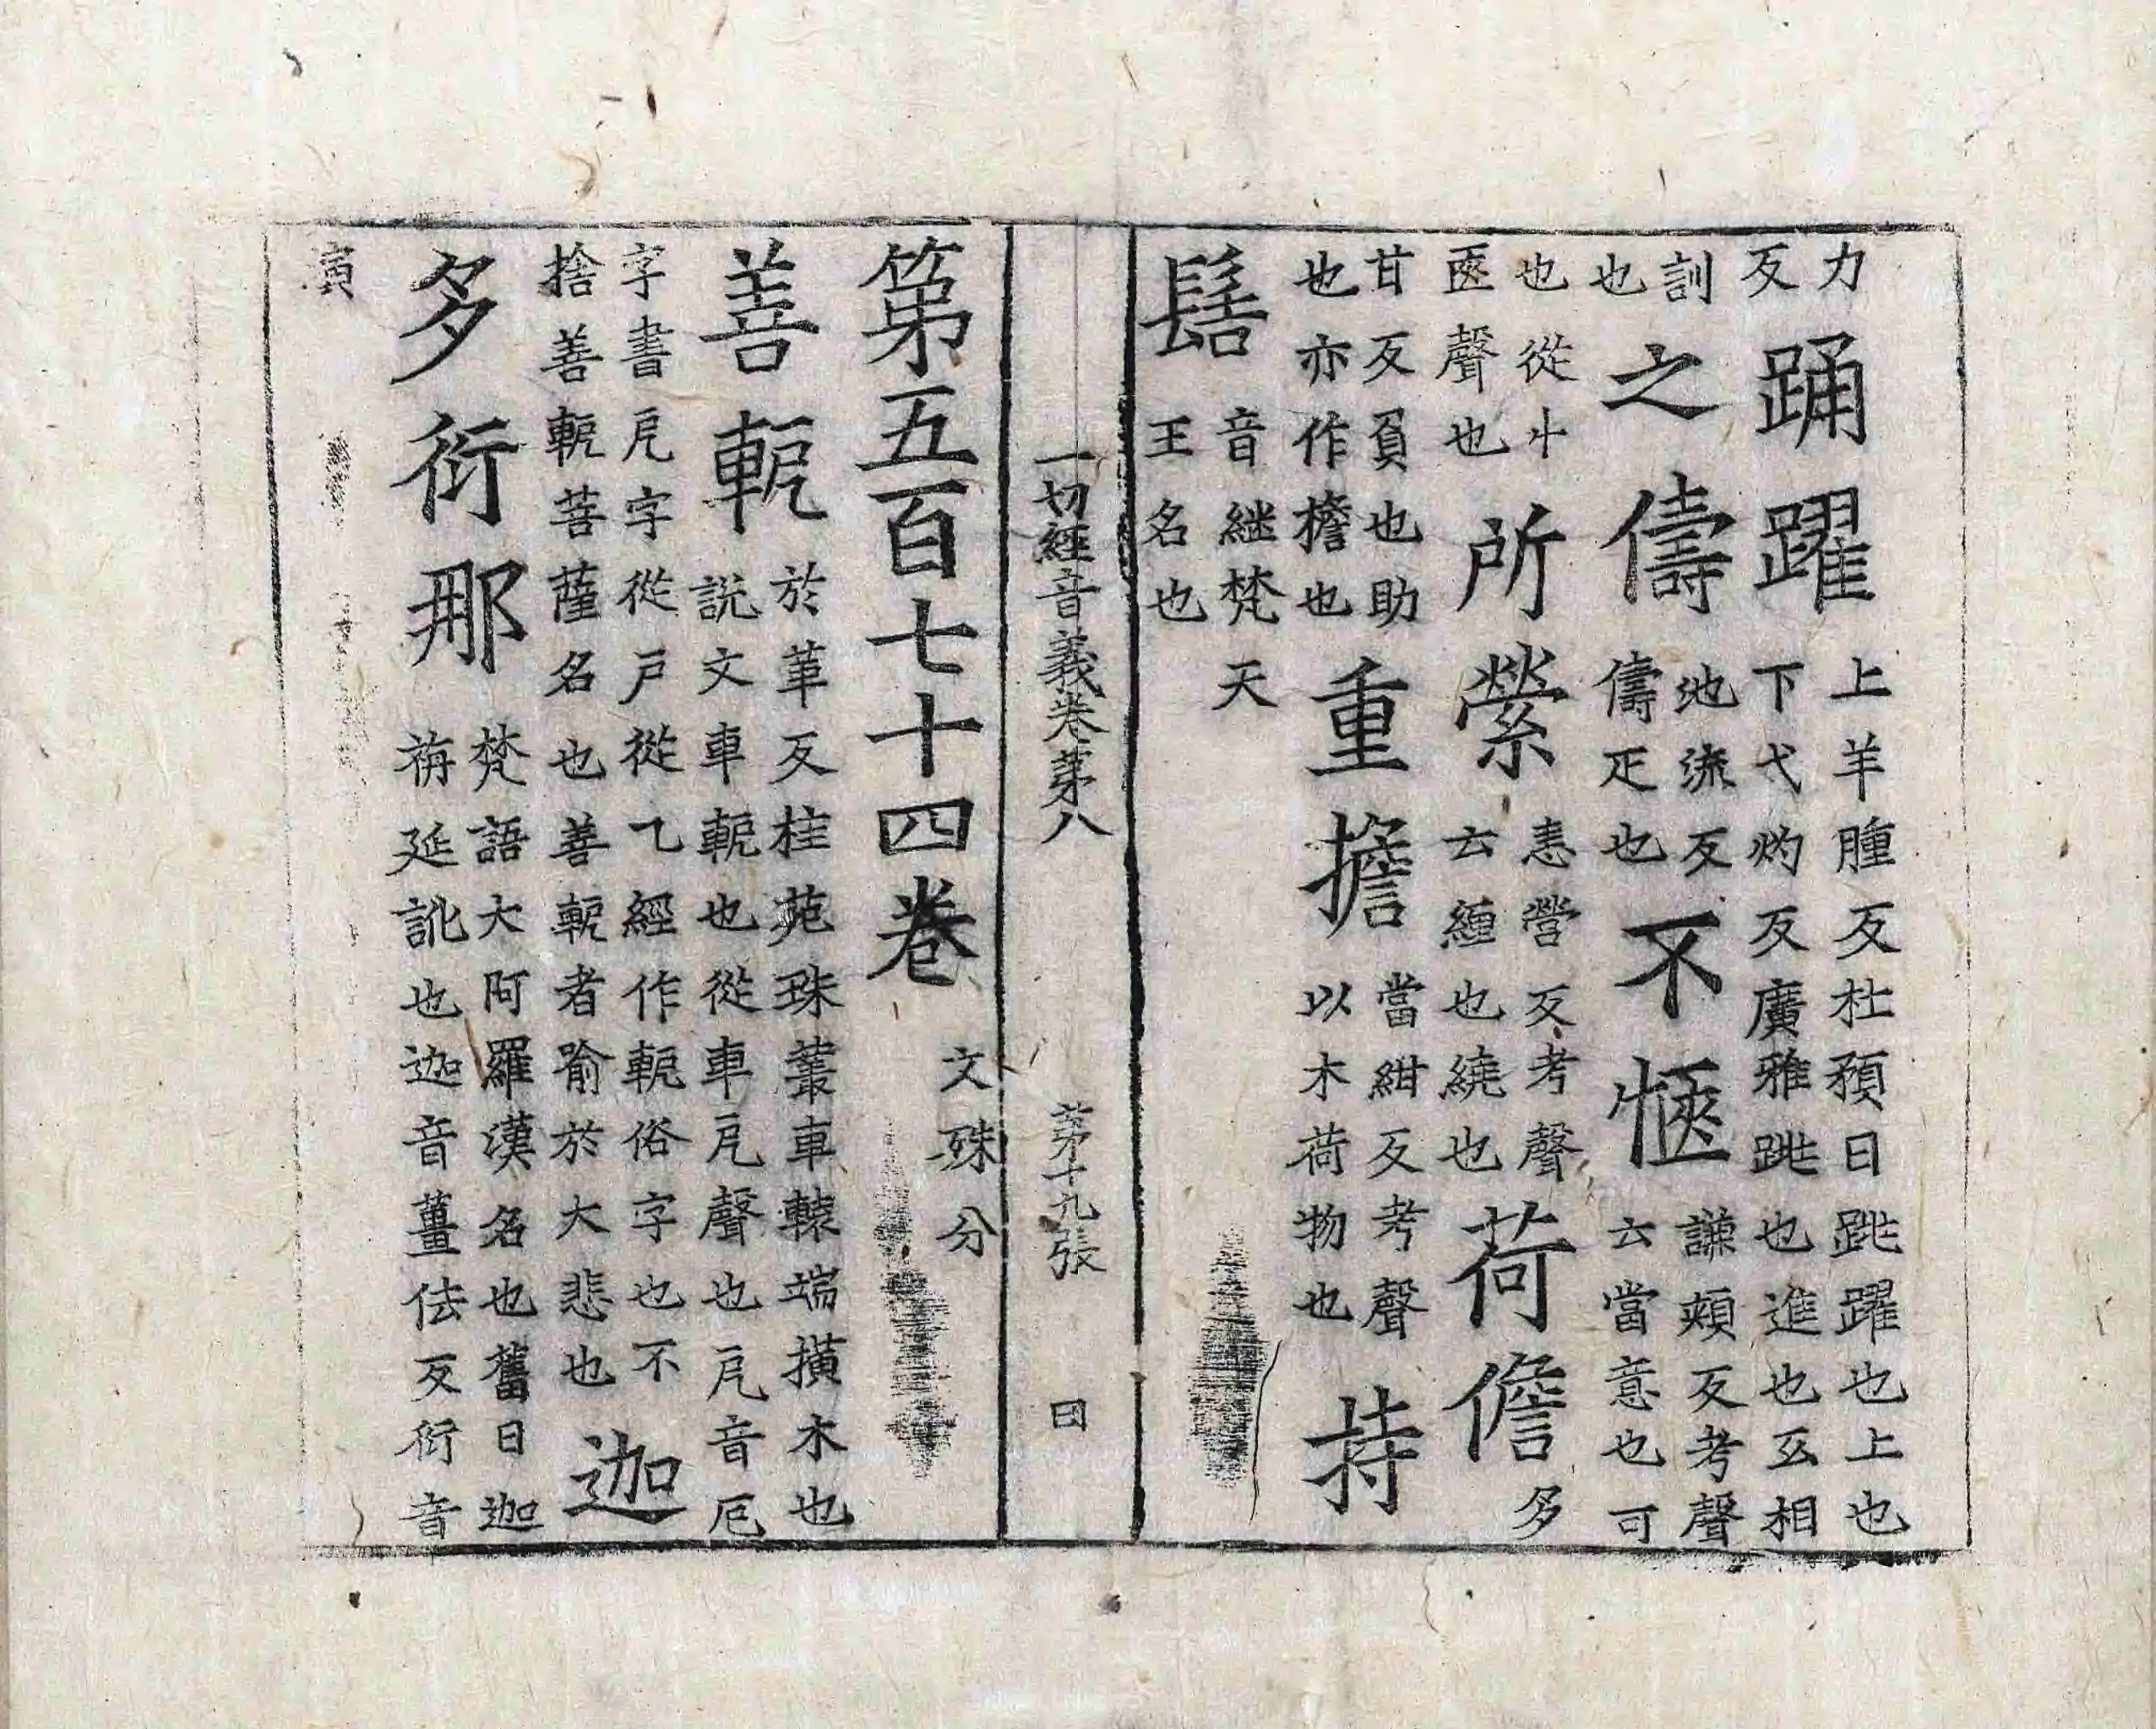 力反踊躍上羊腫反杜預曰跳躍也上也下弋灼反廣雅跳也進也互相
訓也之儔地流反儔疋也不愜謙頰反考聲云當意也可
也從忄匧聲也所縈恚營反考聲云纏也繞也荷儋多
甘反負也助也亦作擔也重擔當紺反考聲以木荷物也持
髻音継梵天王名也
一切經音義卷第八 第十九張 曰
第五百七十四卷 文殊分
善軶於革反桂苑珠叢車轅端撗木也說文車軶也從車戹聲也戹音厄
字書戹字從戶從乁經作軶俗字也不捨善軶菩薩名也善軶者喻於大悲也迦
多衍那梵語大阿羅漢名也舊曰迦旃延訛也迦音薑佉反衍音
演